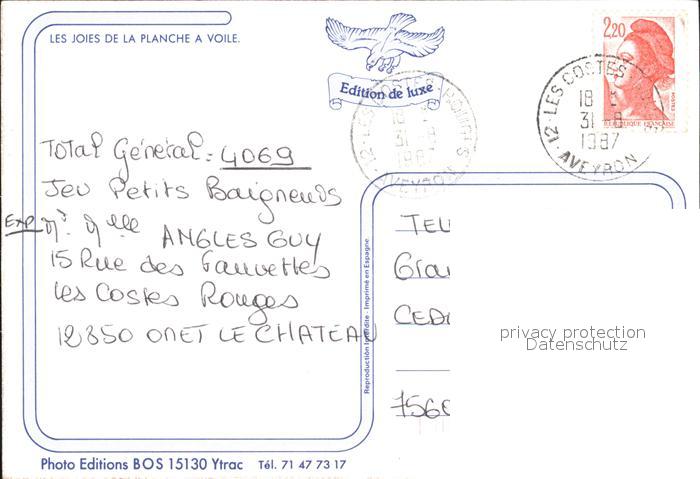 LES JOIES DE LA PLANCHE A VOILE.
Edition de luxe
2,20
REPUBLIQUE FRANÇAISE
12 - LES COSTES
18 H
31 - 8
1987
AVEYRON
12 - LES COSTES ROUGES
31 - 8
1987
AVEYRON
Total Général : 4069
Jeu Petits Baigneurs
EXP Mr Mlle ANGLES GUY
15 Rue des Fauvettes
Les Costes Rouges
12850 ONET LE CHATEAU
TEL
Gra
CED
756
Reproduction Interdite - Imprimé en Espagne
privacy protection
Datenschutz
Photo Editions BOS 15130 Ytrac Tél. 71 47 73 17